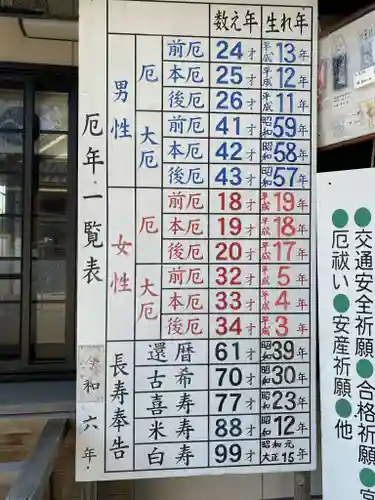 厄年・一覧表
令和六年
数え年 生れ年
男性
厄
前厄 24才 平成13年
本厄 25才 平成12年
後厄 26才 平成11年
大厄
前厄 41才 昭和59年
本厄 42才 昭和58年
後厄 43才 昭和57年
女性
厄
前厄 18才 平成19年
本厄 19才 平成18年
後厄 20才 平成17年
大厄
前厄 32才 平成5年
本厄 33才 平成4年
後厄 34才 平成3年
長寿奉告
還暦 61才 昭和39年
古希 70才 昭和30年
喜寿 77才 昭和23年
米寿 88才 昭和12年
白寿 99才 昭和元 大正15年
●交通安全祈願●合格祈願●
●厄祓い●安産祈願●他